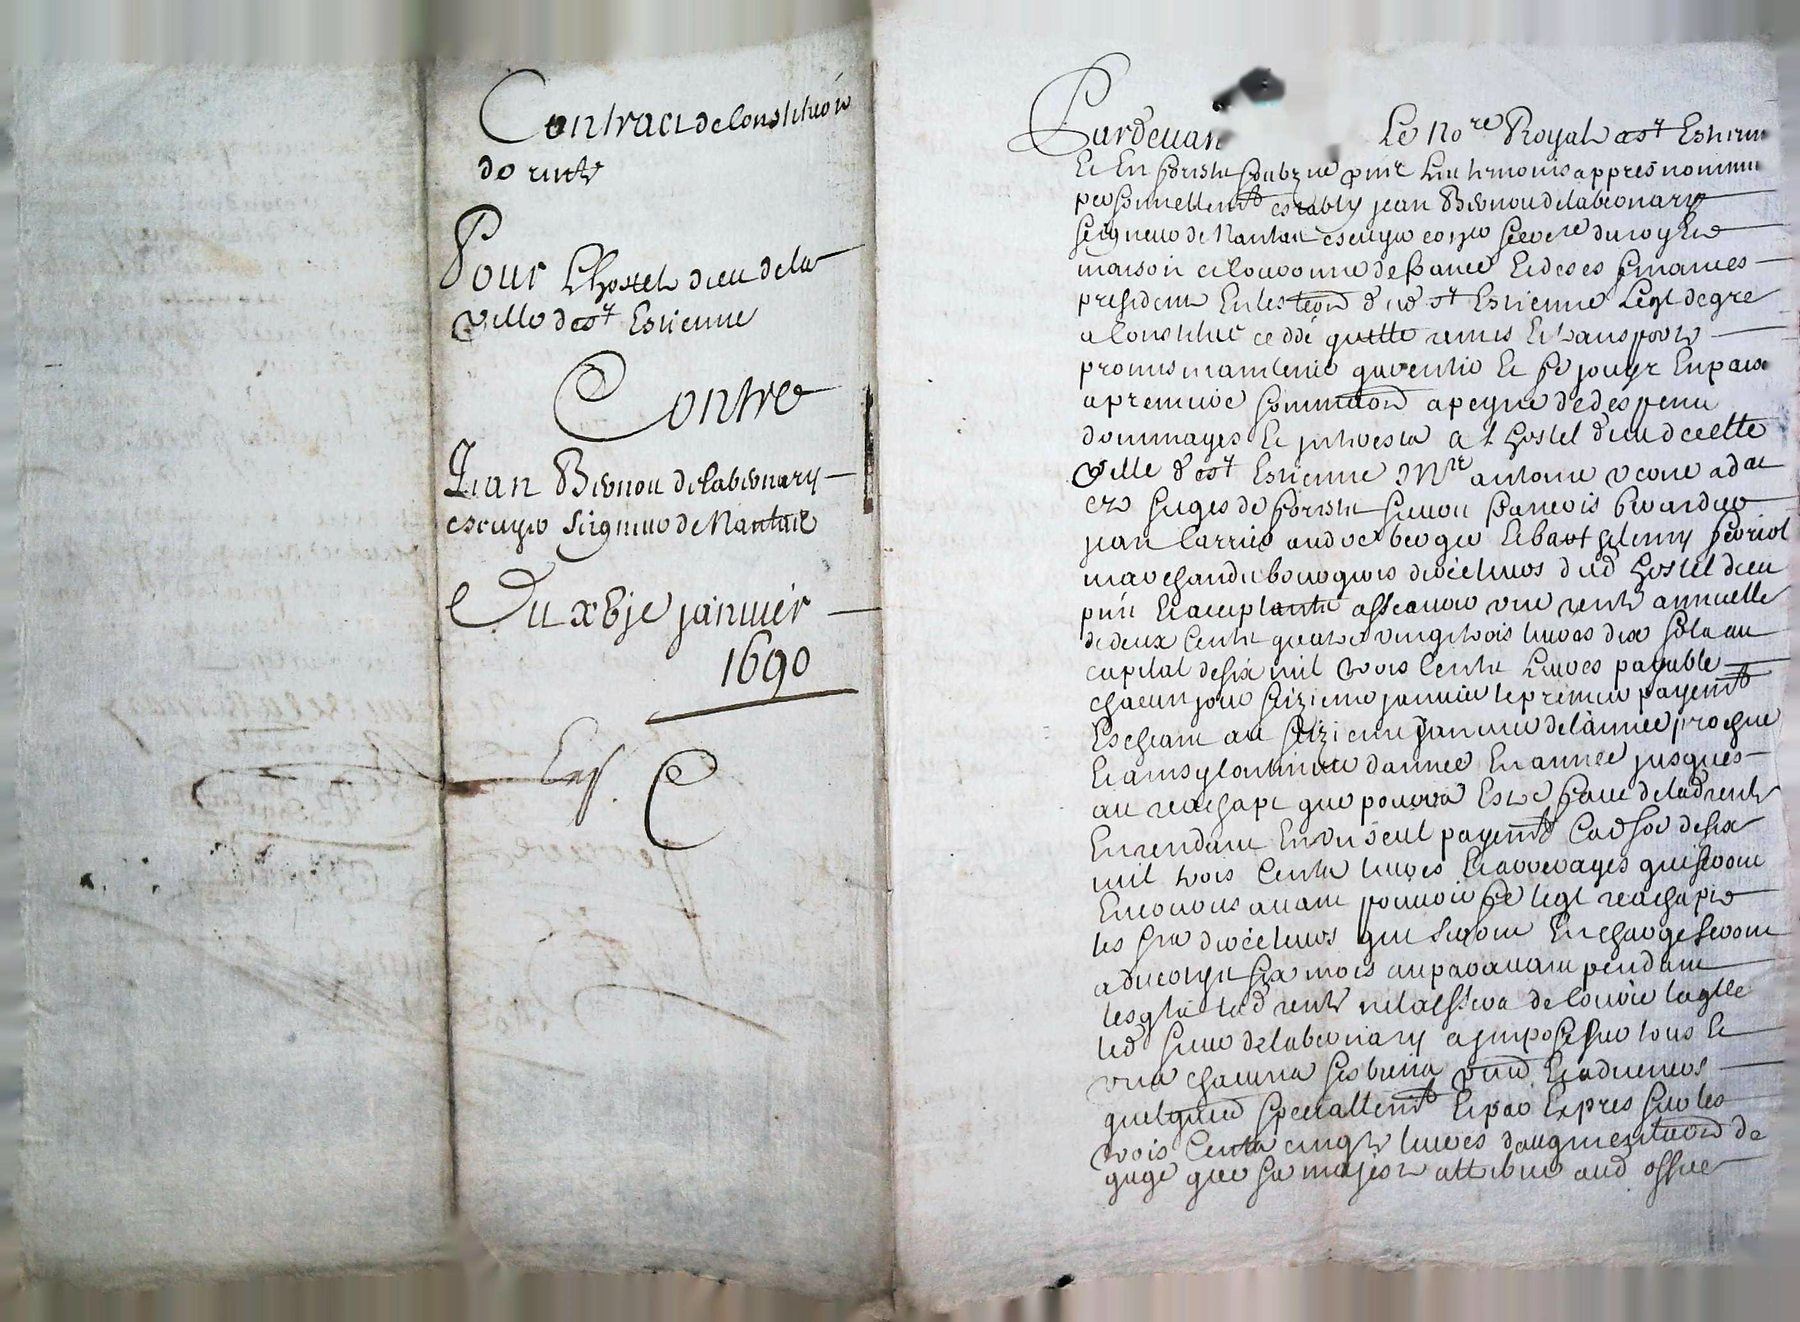 Contract de Constitution
de rente
Pour L'hostel dieu de la
ville de st Estienne
Contre
Jean Bernou de la bernary
escuyer seigneur de Nantas
Du xbje janvier
1690
C
Pardevan Le nore Royal a st Estienne
Et En forestz et les tesmoins appres nommes
personnellemt estably jean Bernou de la bernary
seigneur de Nantas escuyer coner secre du roy
maison et couronne de france Et de ses finances
president En lestion d st Estienne Leql de gre
a Constitué ceddé quitte remis Et transporte
promis maintenir garentir Et fe jouyr En paix
a premiere sommaon a peyne de despens
dommages Et jnterestz a l hostel dieu de cette
ville de st Estienne Mre antoine
juges de forestz sieur francois
jean Et barthelemy
marchand bourgeois directeurs dud hostel dieu
pnt Et acceptant asscavoir une rente annuelle
de deux Cents quatre vingt trois livres dix solz au
capital de six mil trois Cents Livres payable
chacun jour seizieme janvier le premier payemt
Escheant au seizieme Janvier de l'annee prochne
Et ainsy Continuer d'annee En annee jusques
au reachapt que pourra Estre faict de lad rente
En rendant En un seul payemt Cad sor de six
mil trois Cents livres Et arrerages qui seront
Encourus avant pouvoir fe leql reachapt
les srs directeurs qui seront En charge seront
advertys six mois auparavant pendant
lesqls lad rente ne laissera de courir laqlle
led sieur de la bernary a jmposé sur tous Et
uns chacuns ses biens pnts Et advenirs
quelqued speciallemt Et par Expres sur les
trois Cents cinqte livres d'augmentaon de
gage que sa majesté attribue aud office